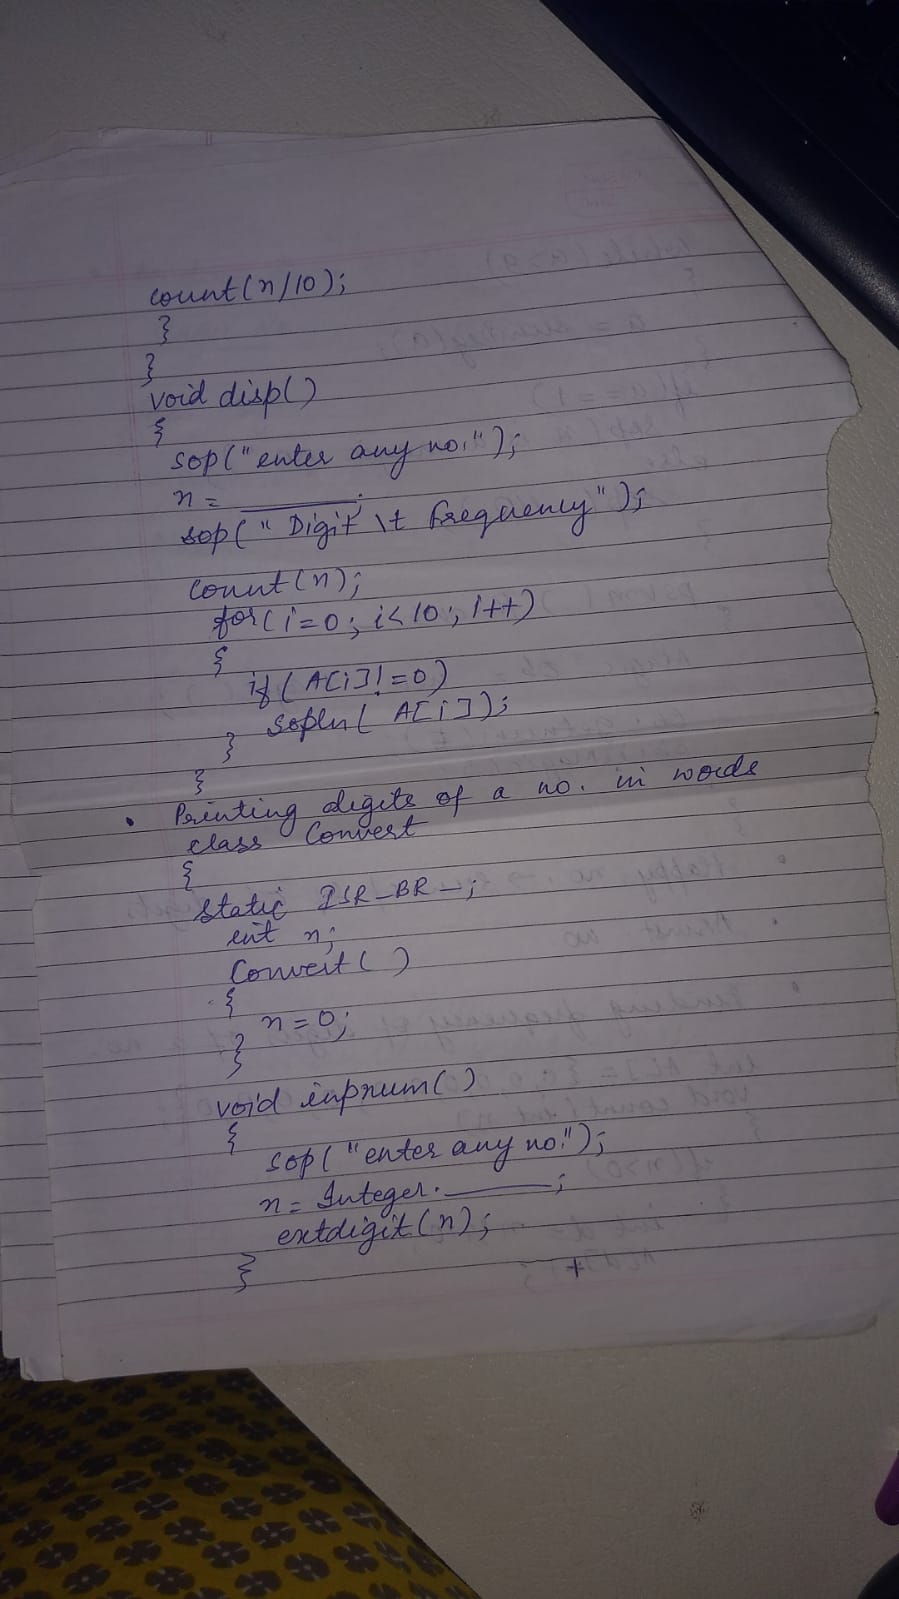 count(n/10);
}
}
void disp()
{
sop("enter any no.");
n = ______.
sop(" Digit \t frequency");
count(n);
for(i=0; i<10; i++)
{
if(A[i]!=0)
sopln( A[i]);
}
}
• Printing digits of a no. in words
class Convert
{
static ISR_BR —;
int n;
Convert()
{
n=0;
}
void inpnum()
{
sop("enter any no.");
n= Integer.______;
extdigit(n);
}